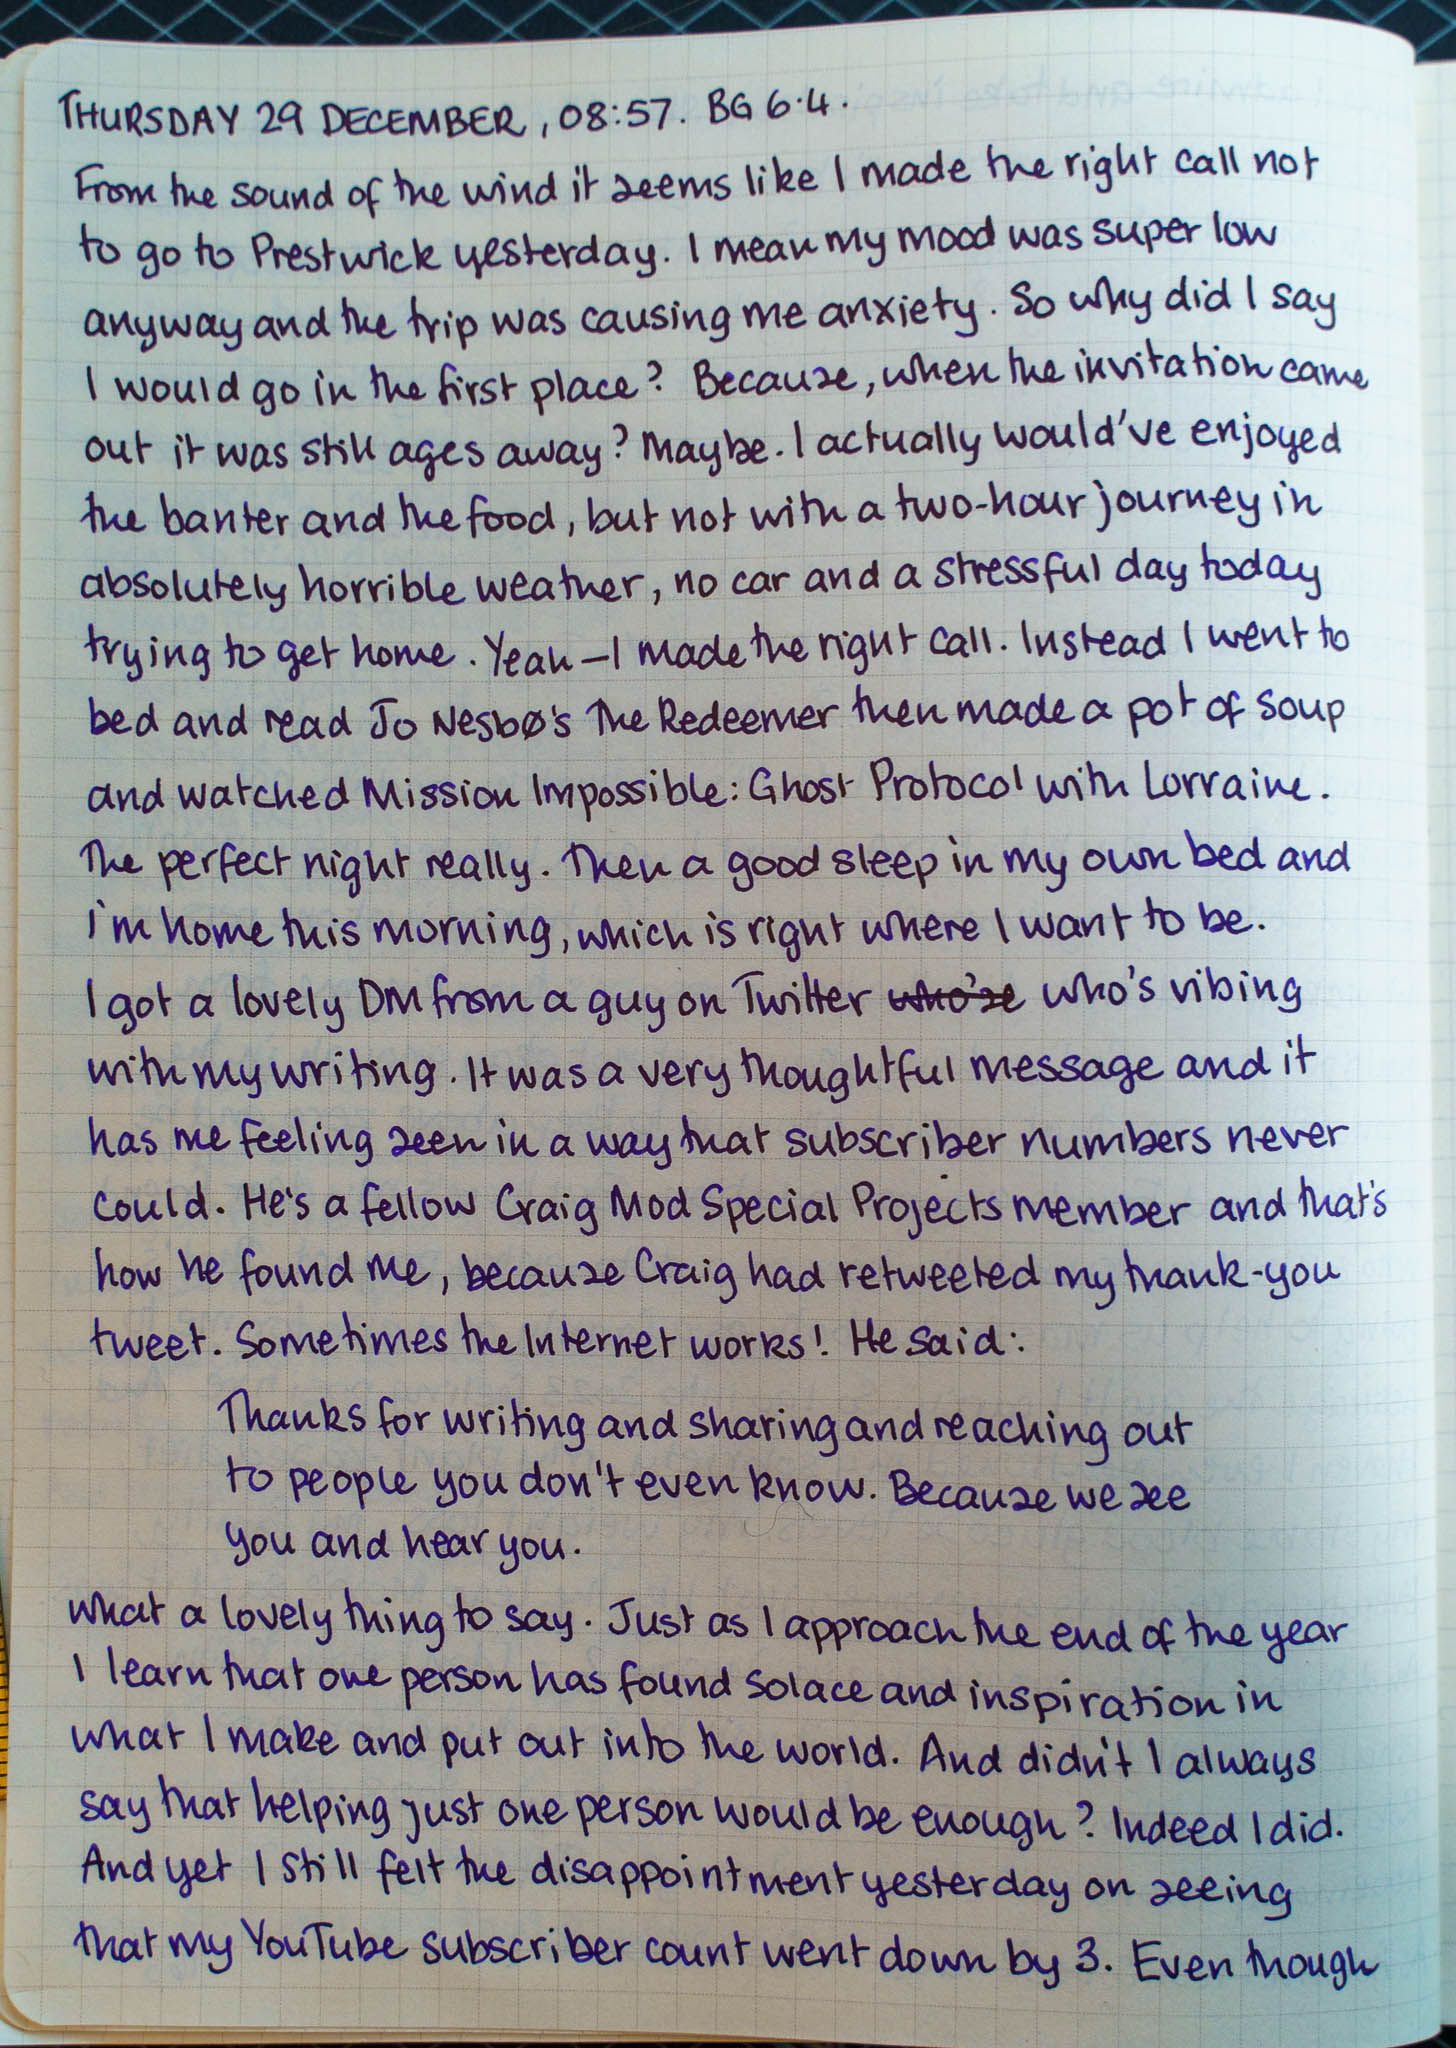 THURSDAY 29 DECEMBER, 08:57. BG 6.4.
From the sound of the wind it seems like I made the right call not
to go to Prestwick yesterday. I mean my mood was super low
anyway and the trip was causing me anxiety. So why did I say
I would go in the first place? Because, when the invitation came
out it was still ages away? Maybe. I actually would've enjoyed
the banter and the food, but not with a two-hour journey in
absolutely horrible weather, no car and a stressful day today
trying to get home. Yeah – I made the right call. Instead I went to
bed and read Jo Nesbø's The Redeemer then made a pot of soup
and watched Mission Impossible: Ghost Protocol with Lorraine.
The perfect night really. Then a good sleep in my own bed and
I'm home this morning, which is right where I want to be.
I got a lovely DM from a guy on Twitter who's who's vibing
with my writing. It was a very thoughtful message and it
has me feeling seen in a way that subscriber numbers never
could. He's a fellow Craig Mod Special Projects member and that's
how he found me, because Craig had retweeted my thank-you
tweet. Sometimes the Internet works! He said:
Thanks for writing and sharing and reaching out
to people you don't even know. Because we see
you and hear you.
What a lovely thing to say. Just as I approach the end of the year
I learn that one person has found solace and inspiration in
what I make and put out into the world. And didn't I always
say that helping just one person would be enough? Indeed I did.
And yet I still felt the disappointment yesterday on seeing
that my YouTube subscriber count went down by 3. Even though